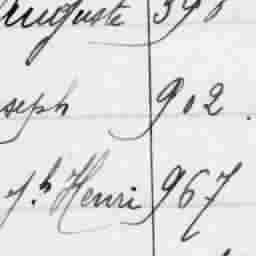 Auguste 398
seph 902.
Jh Henri 967